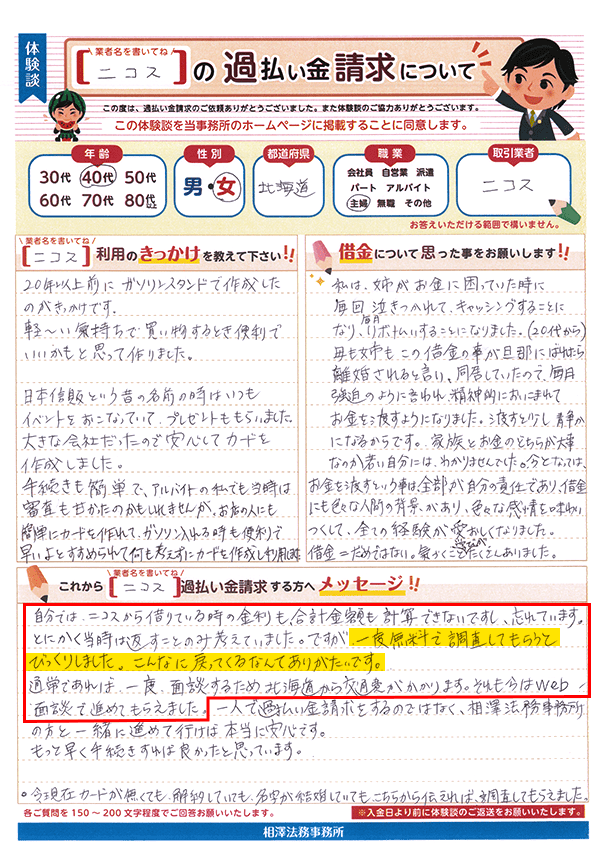 体験談
業者名を書いてね
[ニコス]の過払い金請求について
この度は、過払い金請求のご依頼ありがとうございました。また体験談のご協力ありがとうございます。
この体験談を当事務所のホームページに掲載することに同意します。
年齢
30代 40代 50代
60代 70代 80代以上
性別
男・女
都道府県
北海道
職業
会社員 自営業 派遣
パート アルバイト
主婦 無職 その他
取引業者
ニコス
お答えいただける範囲で構いません。
業者名を書いてね
[ニコス]利用のきっかけを教えて下さい!!
20年以上前にガソリンスタンドで作成した
のがきっかけです.
軽〜い気持ちで買い物するとき便利で
いいかもと思って作りました。
日本信販という昔の名前の時はいつも
イベントをおこなっていて、プレゼントももらいました。
大きな会社だったので安心してカードを
作成しました。
手続きも簡単で、アルバイトの私でも当時は
審査も甘かったのかもしれませんが、お店の人にも
簡単にカードを作れて、ガソリン入れる時も便利で
早いよとすすめられて何も考えずにカードを作成し利用
借金について思った事をお願いします!!
私は、姉がお金に困っていた時に
毎回泣きつかれて、キャッシングすることに
なり、毎月リボ払いすることになりました。(20代から)
母も姉もこの借金の事が旦那にばれたら
離婚されると言い、同居していたので、毎日
強迫のように言われ、精神的においこまれて
お金を渡すようになりました。渡すと少し静か
になるからです。家族とお金のどちらが大事
なのか若い自分には、わかりませんでした。今となっては、
お金を渡すという事は、全部が自分の責任であり、借金
にも色々な人間の背景があり、色々な感情を味わい
つくして、全ての経験が愛おしくなりました。
借金=だめではない。気づくことたくさんありました。
これから
業者名を書いてね
[ニコス]過払い金請求する方へメッセージ!!
自分では、ニコスから借りている時の金利も合計金額も計算できないですし、忘れています。
とにかく当時は返すことのみ考えていました。ですが一度無料で調査してもらうと
びっくりしました。こんなに戻ってくるなんてありがたいです。
通常であれば、一度、面談するため北海道から交通費がかかります。それも今はweb
面談で進めてもらえました。一人で過払い金請求をするのではなく、相澤法務事務所
の方と一緒に進めて行けば本当に安心です。
もっと早く手続きすれば良かったと思っています。
。今現在カードが無くても、解約していても、名字が結婚していてもこちらから伝えれば、調査してもらえました
各ご質問を150〜200文字程度でご回答お願いいたします。
※入金日より前に体験談のご返送をお願いいたします。
相澤法務事務所